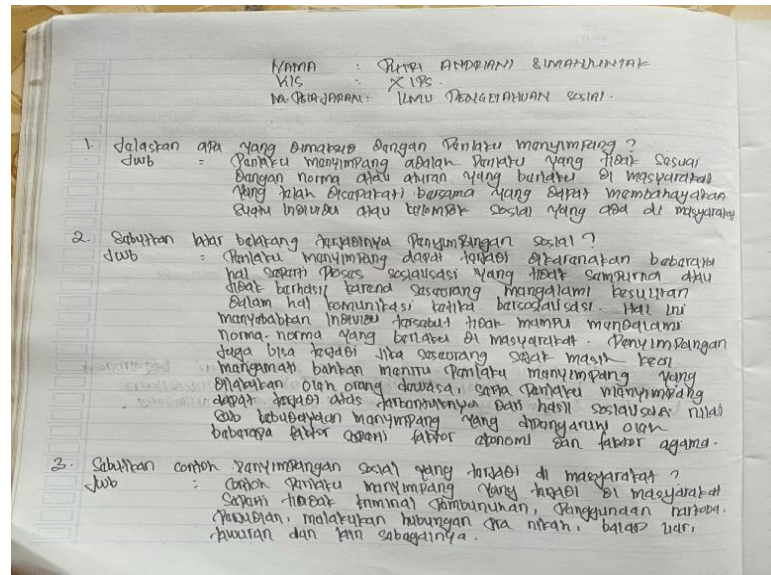 NAMA : PUTRI ANDRIANI SIMANJUNTAK
KlS : X IPS.
M. PELAJARAN : ILMU PENGETAHUAN SOSIAl.
1. Jelaskan apa yang dimaksud dengan Perilaku menyimpang ?
Jwb = Perilaku menyimpang adalah Perilaku yang tidak Sesuai
dengan norma atau aturan yang berlaku di masyarakat
yang telah disepakati bersama yang dapat membahayakan
Suatu Individu atau kelompok sosial yang ada di masyarakat
2. Sebutkan latar belakang terjadinya Penyimpangan sosial ?
Jwb : Perilaku menyimpang dapat terjadi dikarenakan beberapa
hal seperti Proses sosialisasi yang tidak sempurna atau
tidak berhasil karena seseorang mengalami kesulitan
dalam hal komunikasi ketika bersosialisasi. Hal ini
menyebabkan Individu tersebut tidak mampu mendalami
norma-norma yang berlaku di masyarakat. Penyimpangan
Juga bisa terjadi Jika seseorang sejak masih kecil
mengamati bahkan meniru Perilaku menyimpang yang
dilakukan oleh orang dewasa, serta Perilaku menyimpang
dapat terjadi atas terbentuknya dari hasil sosialisasi nilai
sub kebudayaan menyimpang yang dipengaruhi oleh
beberapa faktor seperti faktor ekonomi dan faktor agama.
3. Sebutkan contoh Penyimpangan sosial yang terjadi di masyarakat ?
Jwb : Contoh Perilaku menyimpang yang terjadi di masyarakat
seperti tindak kriminal Pembunuhan, Penggunaan narkoba.
Perjudian, melakukan hubungan Pra nikah, balap liar,
tawuran dan lain sebagainya.